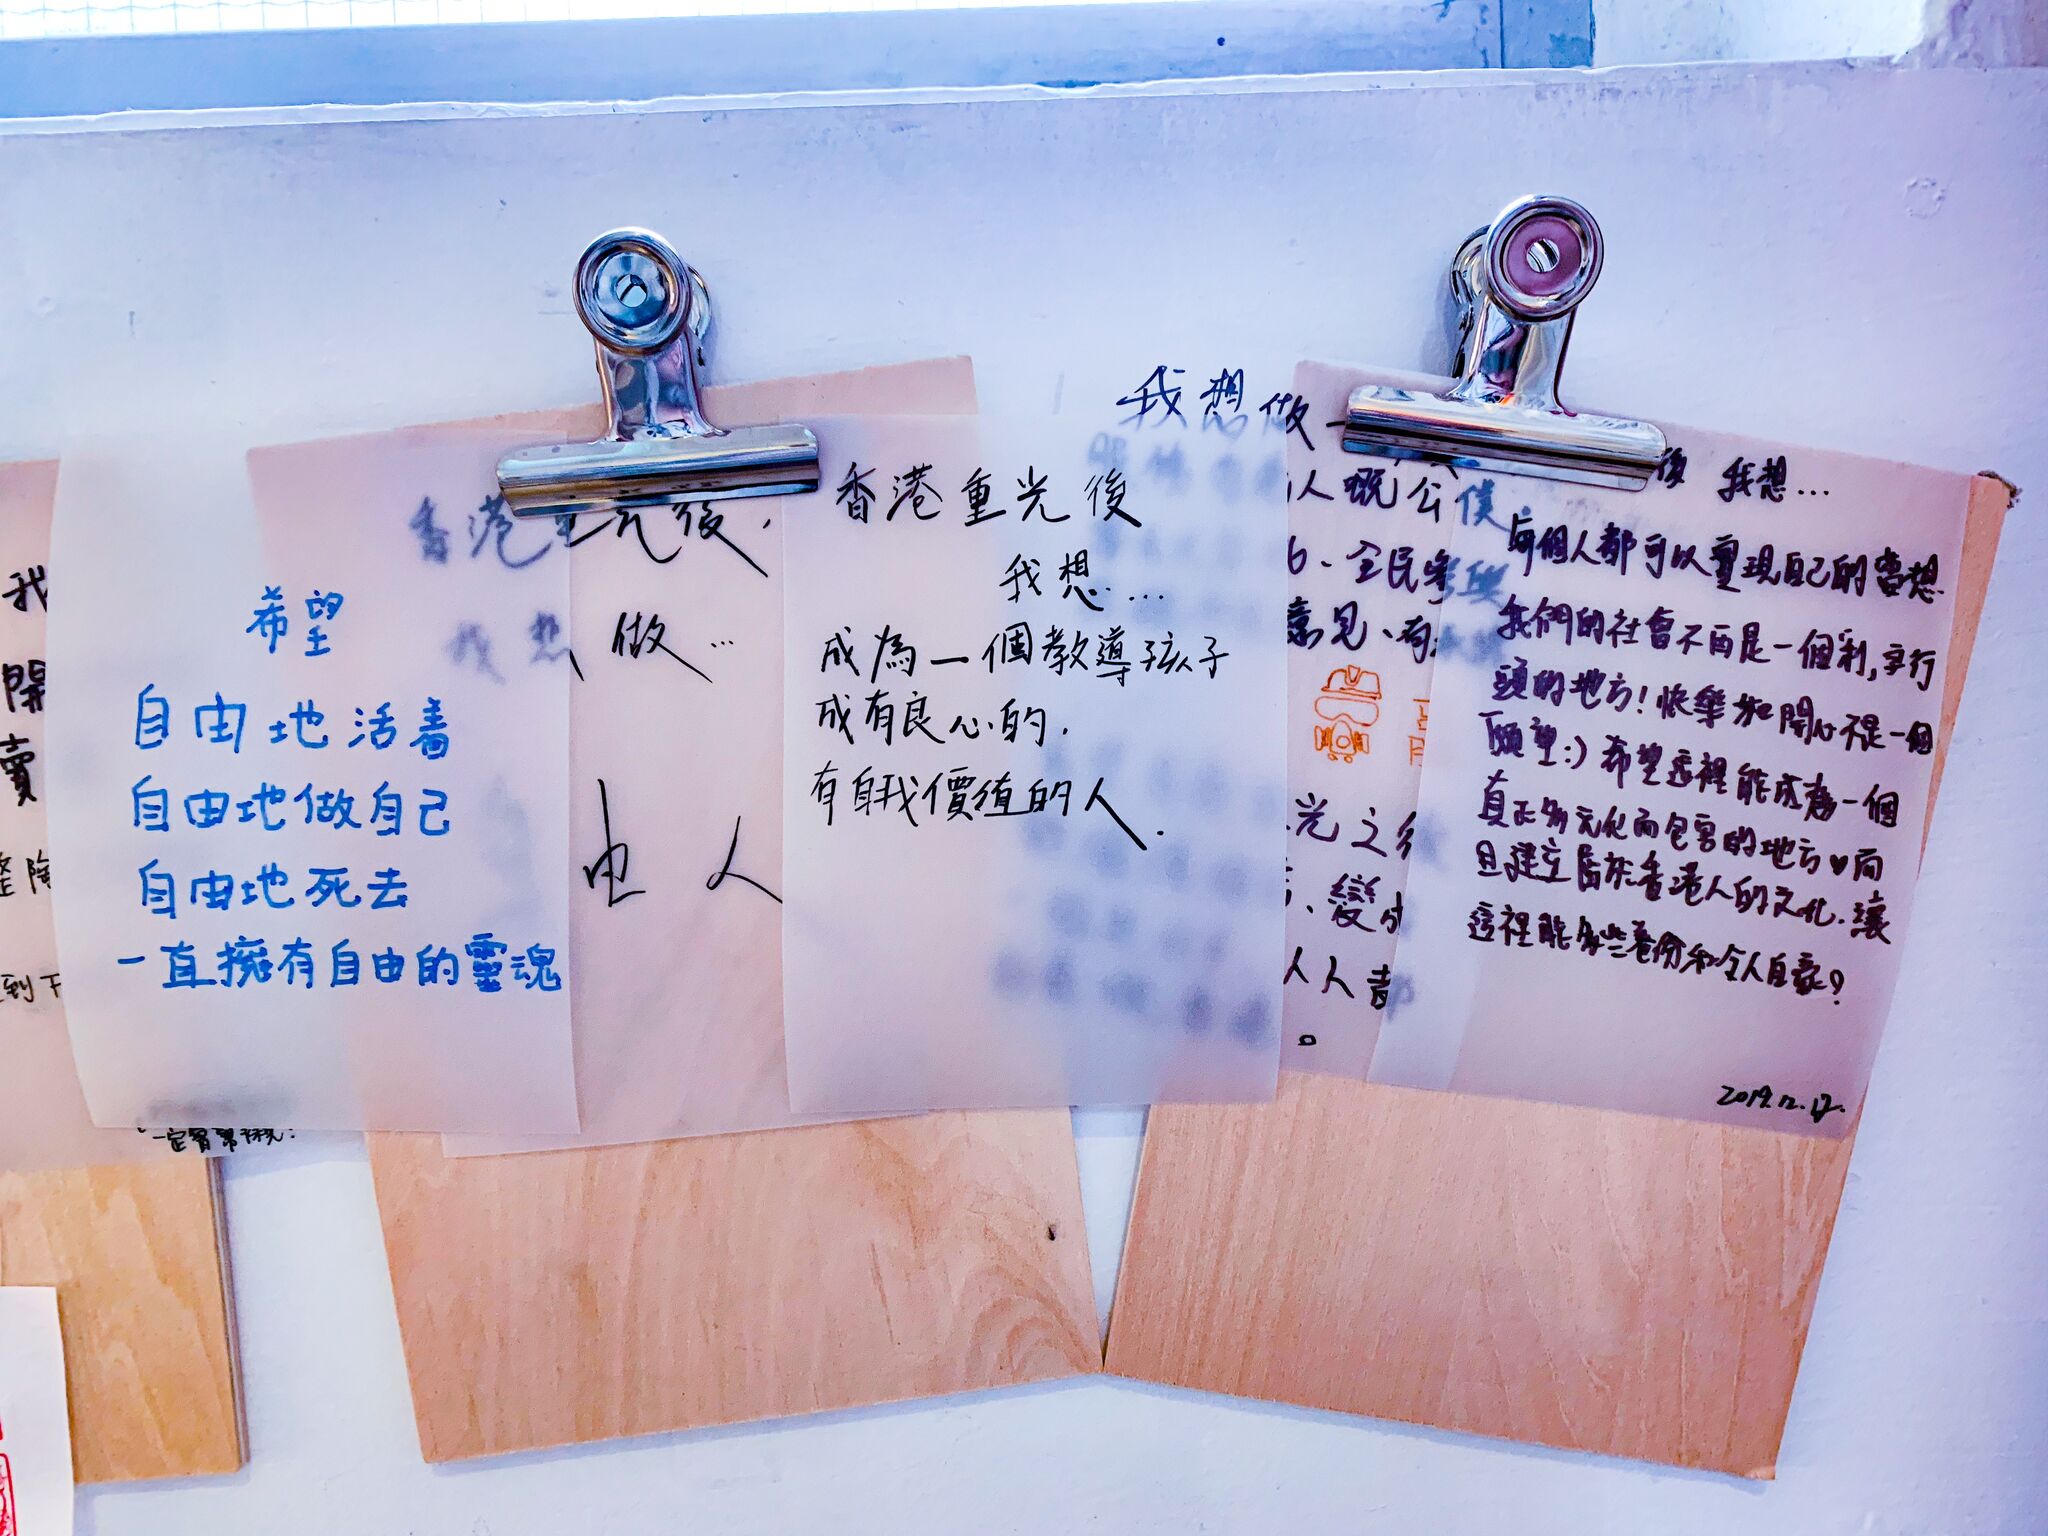 我
開
賣
到下
希望
自由地活着
自由地做自己
自由地死去
一直擁有自由的靈魂
香港重光後,
我想做...
由人
香港重光後
我想...
成為一個教導孩子
成有良心的,
有自我價值的人.
我想做一
人嘅公僕
全民參與
意見、有
光之後
變成
人人都
。
後 我想...
每個人都可以實現自己的夢想
我們的社會不再是一個利,字行
頭的地方!快樂和開心不是一個
願望:) 希望這裡能成為一個
真正多元化而包容的地方♥而
且建立屬於香港人的文化.讓
這裡能多些卷份和令人自豪?
2019.12.17.